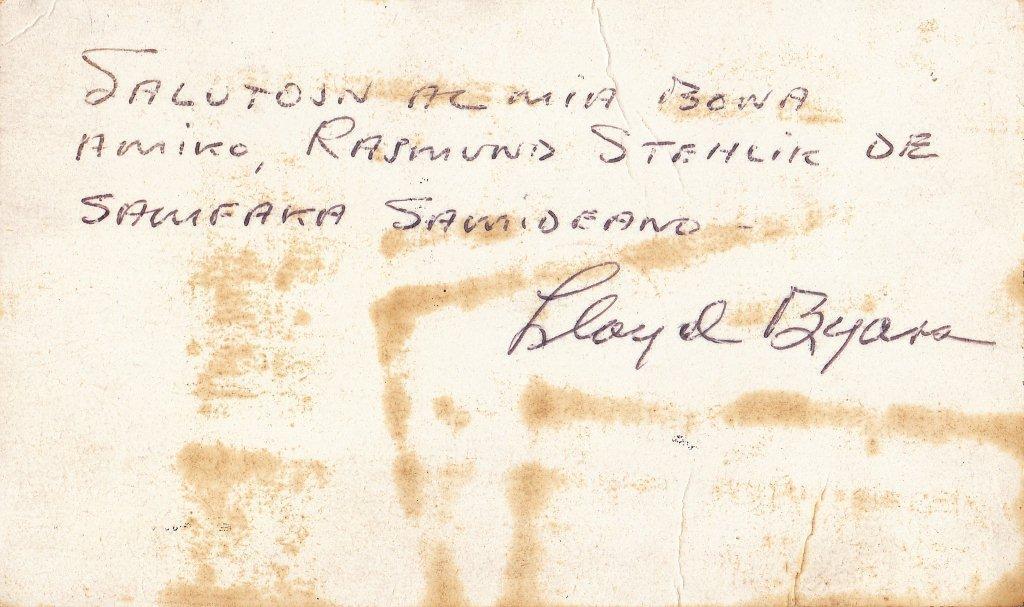 SALUTOJN AL MIA BONA
AMIKO, RASMUND STEHLIK DE
SAMFAKA SAMIDEANO -
Lloyd Byars